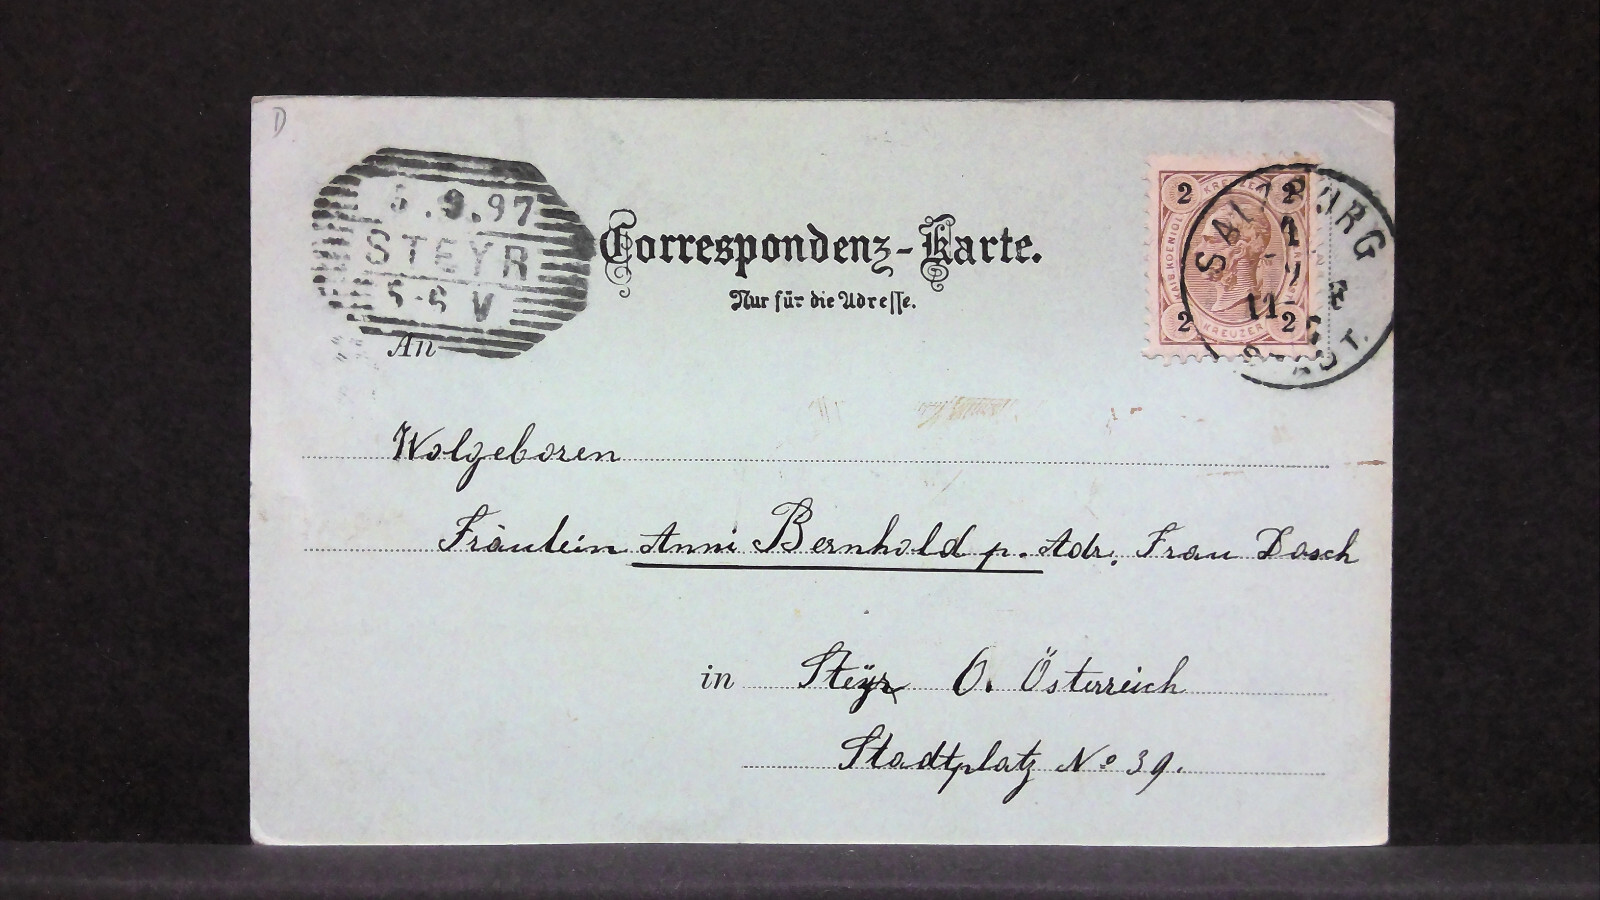 D
9.97
STEYR
V
Correspondenz-Karte.
Nur für die Adresse.
2 KREUZER 2
KAIS. KOENIGL.
2 KREUZER 2
SALZBURG
STADT.
An
Wolgeboren
Fräulein Anni Bernhold p. Adr. Frau Dasch
in Steÿr O. Österreich
Stadtplatz No 39.